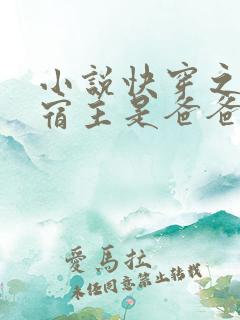 小說快穿之
宿主是爸爸
愛馬扗
未经同意禁止转载